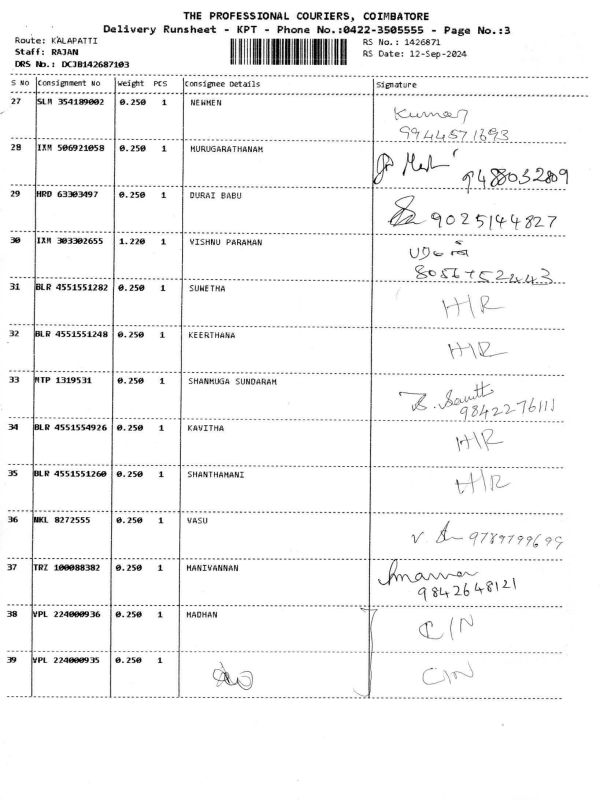 THE PROFESSIONAL COURIERS, COIMBATORE
Delivery Runsheet - KPT - Phone No.:0422-3505555 - Page No.:3
Route: KALAPATTI
RS No.: 1426871
Staff: RAJAN
RS Date: 12-Sep-2024
DRS No.: DCJB142687103
S No Consignment No Weight PCS Consignee Details Signature
27 SLM 354189002 0.250 1 NEWMEN Kumar
9944571693
28 IXM 506921058 0.250 1 MURUGARATHANAM 9488032809
29 HRD 63303497 0.250 1 DURAI BABU 9025144827
30 IXM 303302655 1.220 1 VISHNU PARAMAN
31 BLR 4551551282 0.250 1 SUWETHA H/R
32 BLR 4551551248 0.250 1 KEERTHANA H/R
33 MTP 1319531 0.250 1 SHANMUGA SUNDARAM
9842276111
34 BLR 4551554926 0.250 1 KAVITHA H/R
35 BLR 4551551260 0.250 1 SHANTHAMANI H/R
36 NKL 8272555 0.250 1 VASU 9789799699
37 TRZ 100088382 0.250 1 MANIVANNAN
9842648121
38 VPL 224000936 0.250 1 MADHAN C/N
39 VPL 224000935 0.250 1 C/N